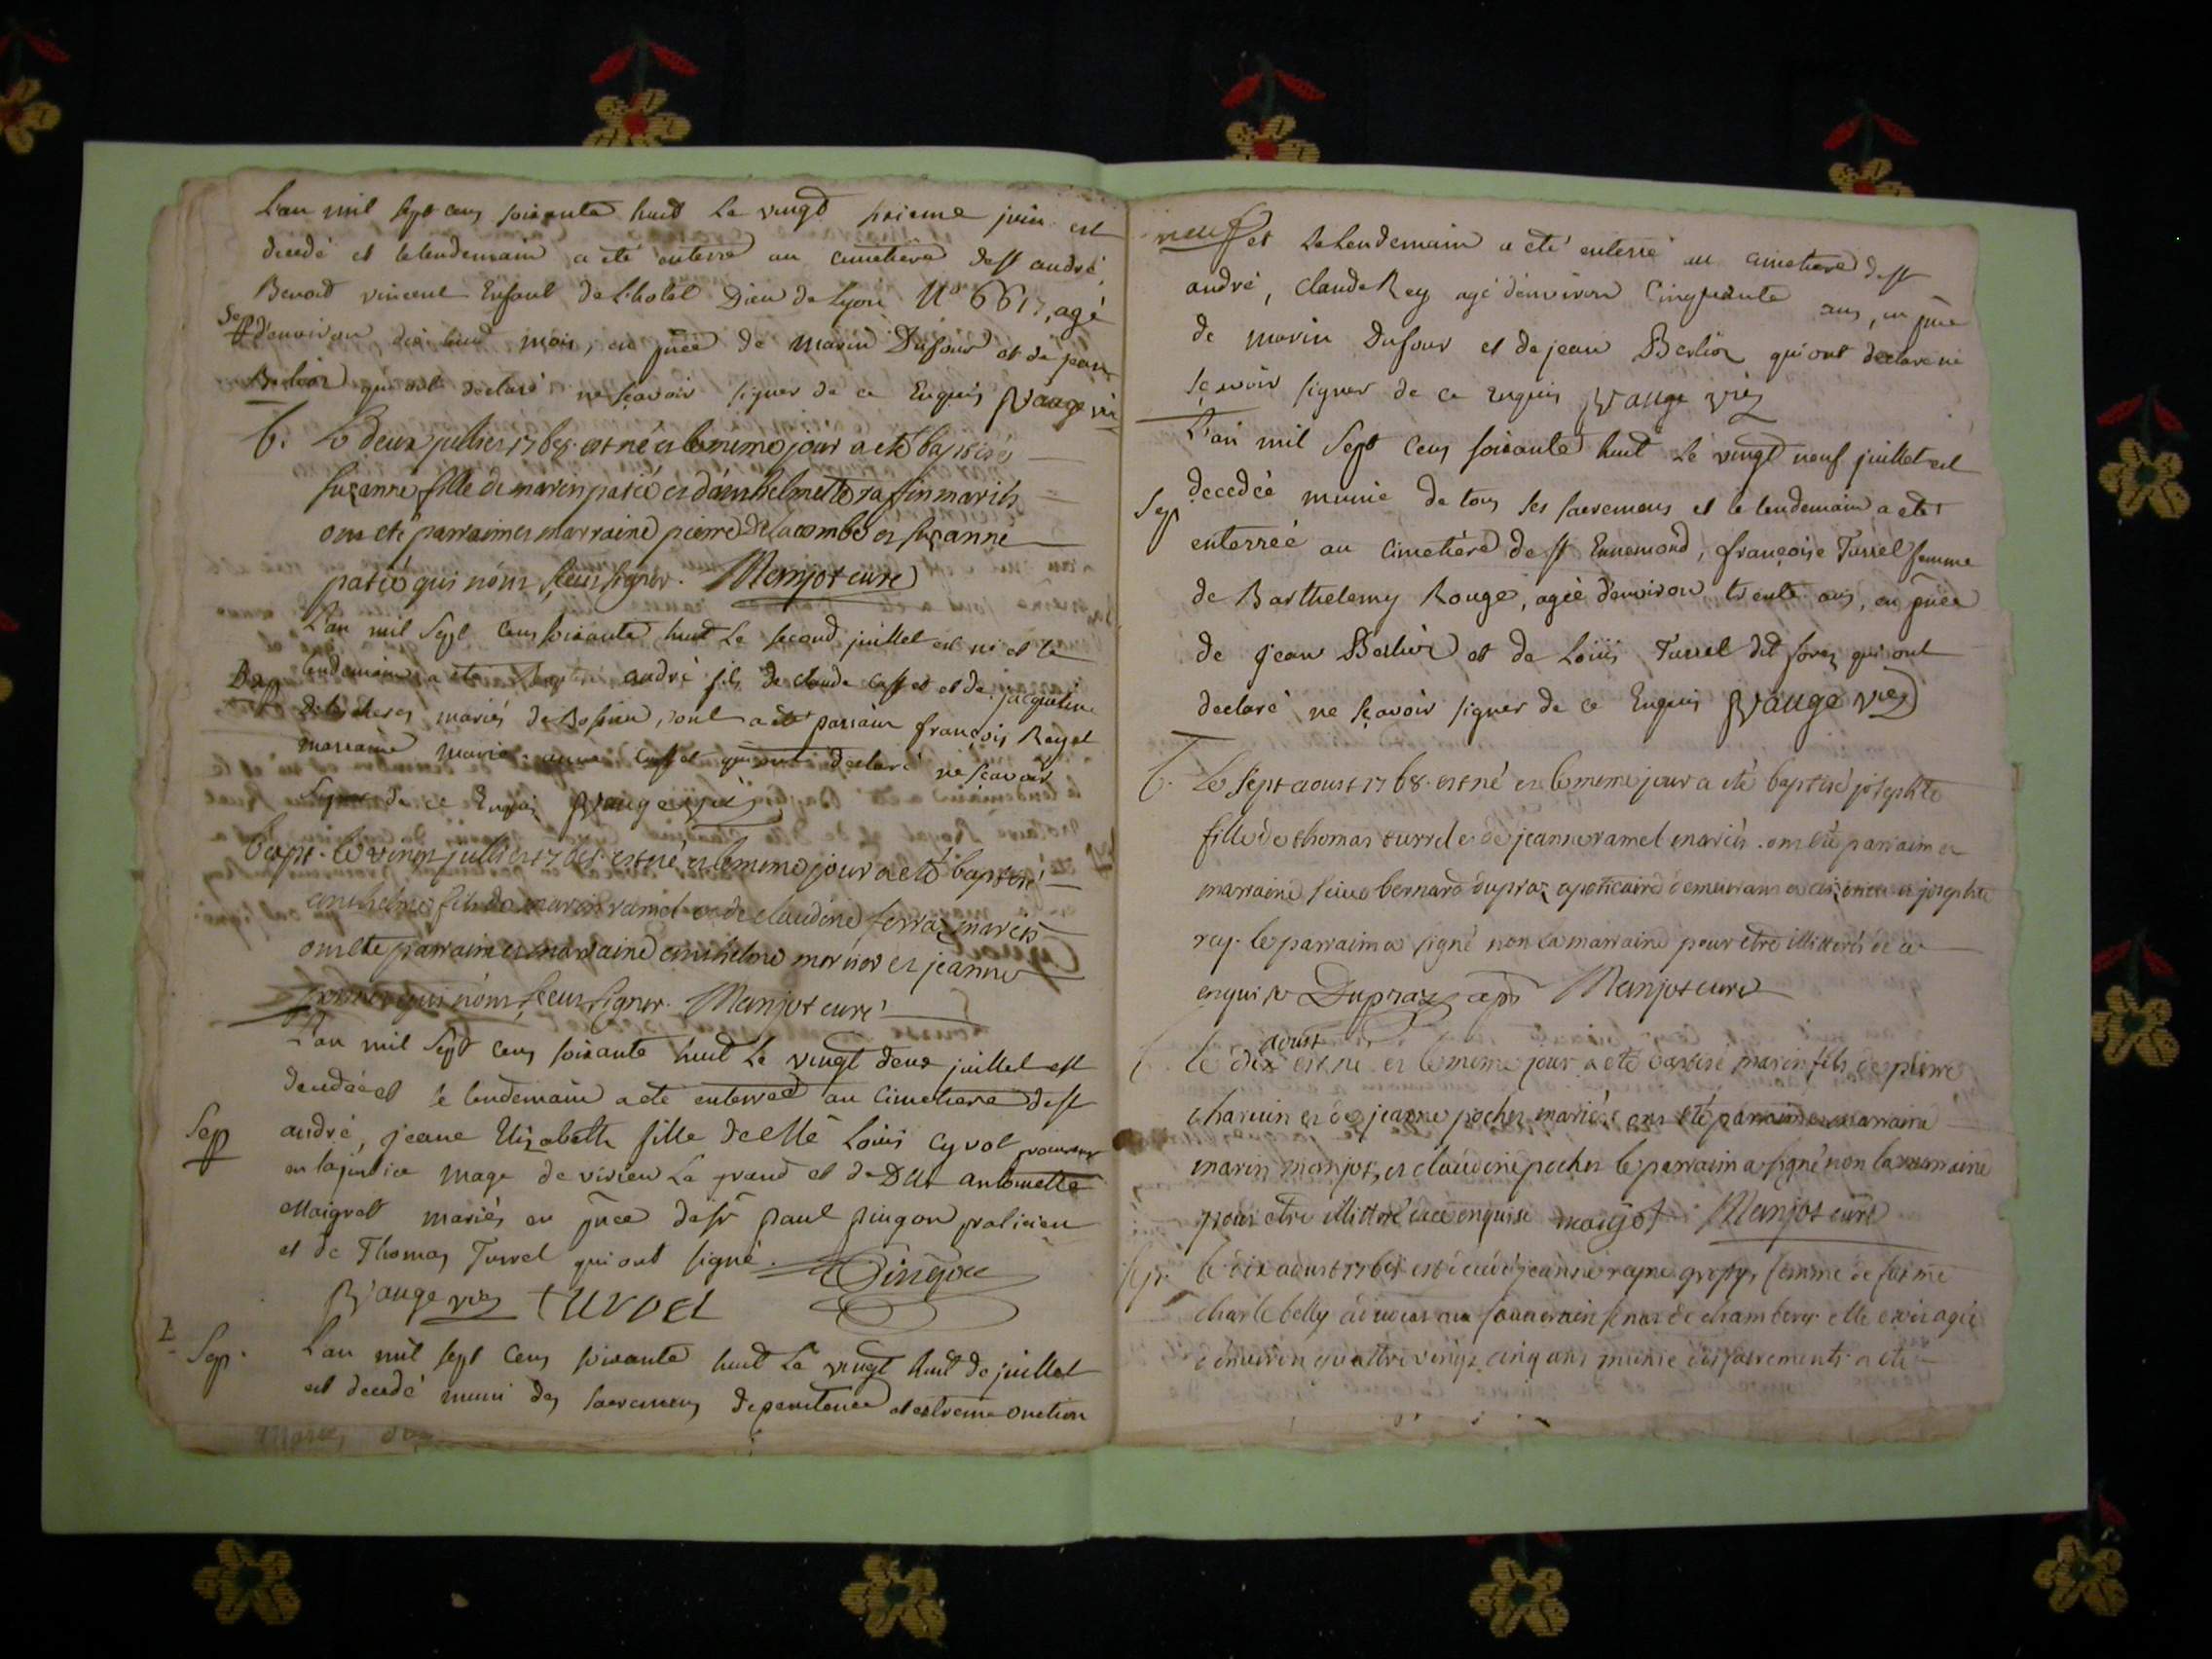 L'an mil sept cens soixante huit Le vingt sixieme juin est
décédé et le lendemain a été enterré au cimetière de st andré
Benoit vincent Enfant de L'hotel Dieu de Lyon N° 6617, agé
Sep d'environ dix huit mois, en pñce de marin Dufour et de jean
Berlioz qui ont declaré ne sçavoir signer de ce Enquis Vauge vic
b. Le deux juillet 1768 est né et le meme jour a eté baptisée
suzanne fille de marin patéé et d'anthelmette raffin mariés
ont eté parrain et marraine pierre Delacombe et suzanne
patéé qui n'ont sçeu signer. Manjot curé
L'an mil Sept cens soixante huit Le second juillet est né et le
Bap lendemain a été baptisé andré fils de claude et de jacqueline
mariés de, dont a été parrain françois Reyet
marraine marie anne qui ont declaré ne sçavoir
signer de ce Enquis Vauge vic
bapt. Le vingt juillet 1768 est né et le meme jour a eté baptisé
anthelme fils de marin ramel et de claudine ferraz mariés
ont eté parrain et marraine anthelme et jeanne
qui n'ont sçeu signer. Manjot curé
L'an mil Sept cens soixante huit Le vingt deux juillet est
decedée et le lendemain a eté enterrée au Cimetiere de st
Sep andré, jeane Elizabeth fille de Me Louis Cyvot procureur
en la justice mage de virieu Le grand et de Dlle antoinette
Maigret mariés en pñce de sr paul pingon praticien
et de Thomas Turrel qui ont signé. Pingon
Vauge vic turrel
Sep. L'an mil sept cens soixante huit Le vingt huit de juillet
est decedé muni des sacremens de penitence et extreme onction
neuf et Le Lendemain a eté enterré au cimetiere de st
andré, Claude Rey agé d'environ Cinquante ans, en pñce
de marin Dufour et de jean Berlioz qui ont declaré ne
sçavoir signer de ce enquis Vauge vic
L'an mil Sept Cens soixante huit Le vingt neuf juillet est
Sep decedée munie de tous ses sacremens et le lendemain a eté
enterrée au Cimetière de st Ennemond, françoise Turrel femme
de Barthelemy Rouge, agée d'environ trente ans, en pñce
de jean Berlioz et de Loüis Turrel dit qui ont
declaré ne sçavoir signer de ce Enquis Vauge vic
b. Le sept aoust 1768 est né et le meme jour a eté baptisé josephte
fille de thomas turrel et de jeanne ramel mariés. ont eté parrain et
marraine sieur bernard dupraz apoticaire demeurant a et josephte
rey. le parrain a signé non la marraine pour etre illitterée de ce
enquise Dupraz Manjot curé
aoust
b. le dix est né et le meme jour a eté baptisé marin fils de pierre
charvin et de jeanne pochet mariés ont eté parrain et marraine
marin manjot, et claudine pochet le parrain a signé non la marraine
pour etre illitteré de ce enquise manjot Manjot curé
sep. Le dix aoust 1768 est decedé jeanne reyne femme de feu me
charle belly avocat au souverain senat de chambery elle etoit agée
d'environ quattre vingt cinq ans munie des sacrements a eté